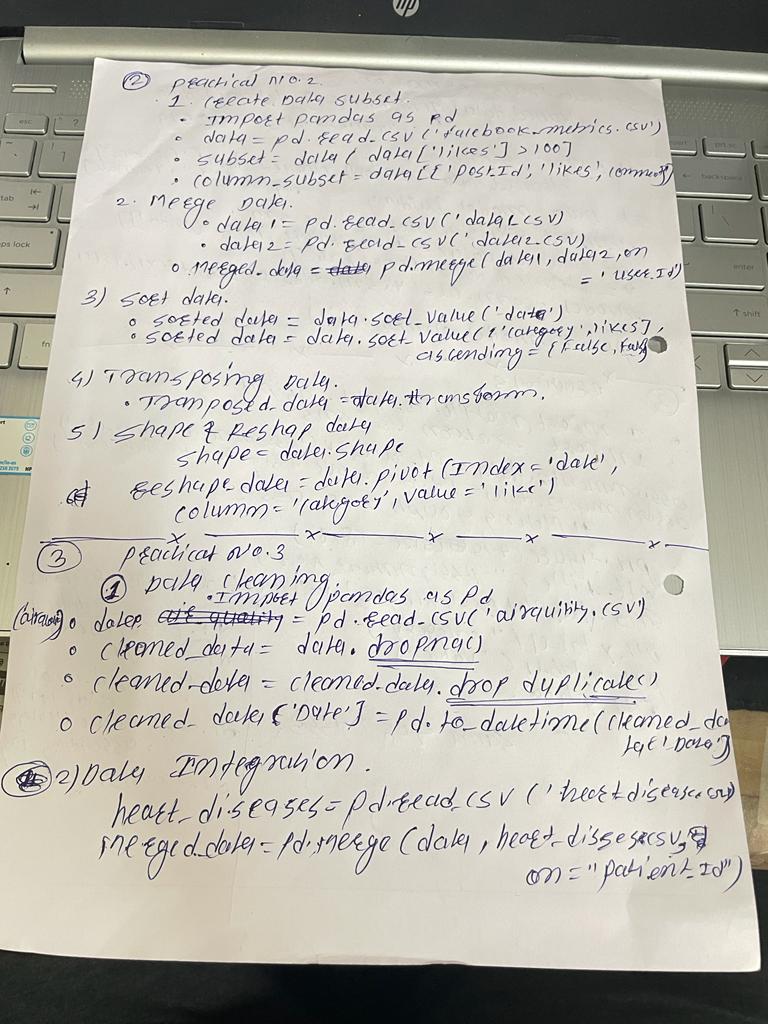 hp
② Practical No. 2
1. Create Data subset.
• Import pandas as pd
• data = pd.read_csv ('facebook_metrics.csv')
• subset = data [ data ['likes'] > 100]
• column_subset = data [['post_Id', 'likes', comment]
2. Merge Data.
• data1 = pd.read_csv ('data1.csv)
• data2 = pd.read_csv ('data2.csv)
• Merged_data = pd.merge (data1, data2, on
= 'User_Id')
3) Sort data.
• sorted data = data.sort_value ('data')
• sorted data = data.sort_value (['category', likes],
ascending = [False, False]
4) Transposing Data.
• Tranposed_data = data.transform.
5) Shape & Reshap data
shape = data.shape
reshape_data = data.pivot (Index = 'date',
column = 'category', value = 'like')
③ Practical No. 3
① Data cleaning.
• Import pandas as Pd
• data = pd.read_csv ('airquility.csv)
• cleaned_data = data.dropna()
• cleaned-data = cleaned-data.drop duplicate()
• cleaned_data ['Date'] = pd.to_datetime (cleaned_da
ta['Data']
2) Data Integration.
heart_diseases = pd.read_csv ('heartdisease.csv)
Merged_data = pd.merge (data, heart_disses.csv,
on = "patient_Id")
esc
tab
caps lock
fn
backspace
enter
shift